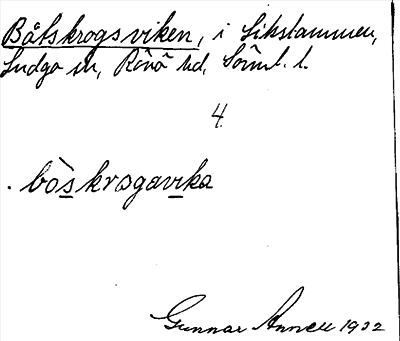 Båtskrogsviken, i Likstammen,
Ludgo sn, Rönö hd, Söml. l.
4.
bòskrogavika
Gunnar Annell 1932